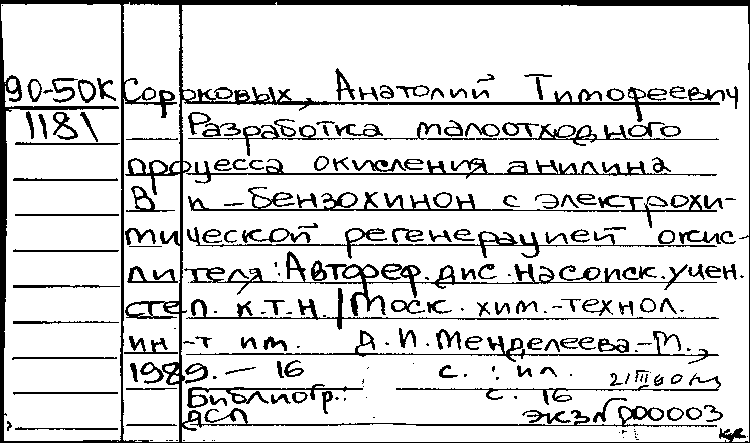 90-50К Сороковых, Анатолий Тимофеевич
1181 Разработка малоотходного
процесса окисления анилина
в п-бензохинон с электрохи-
мической регенерацией окис-
лителя: Автореф. дис. на соиск. учен.
степ. к.т.н / Моск. хим.-технол.
ин-т им. Д.И. Менделеева.-М.,
1989.- 16 с. : ил.
Библиогр.: с. 16
ДСП экз№00003